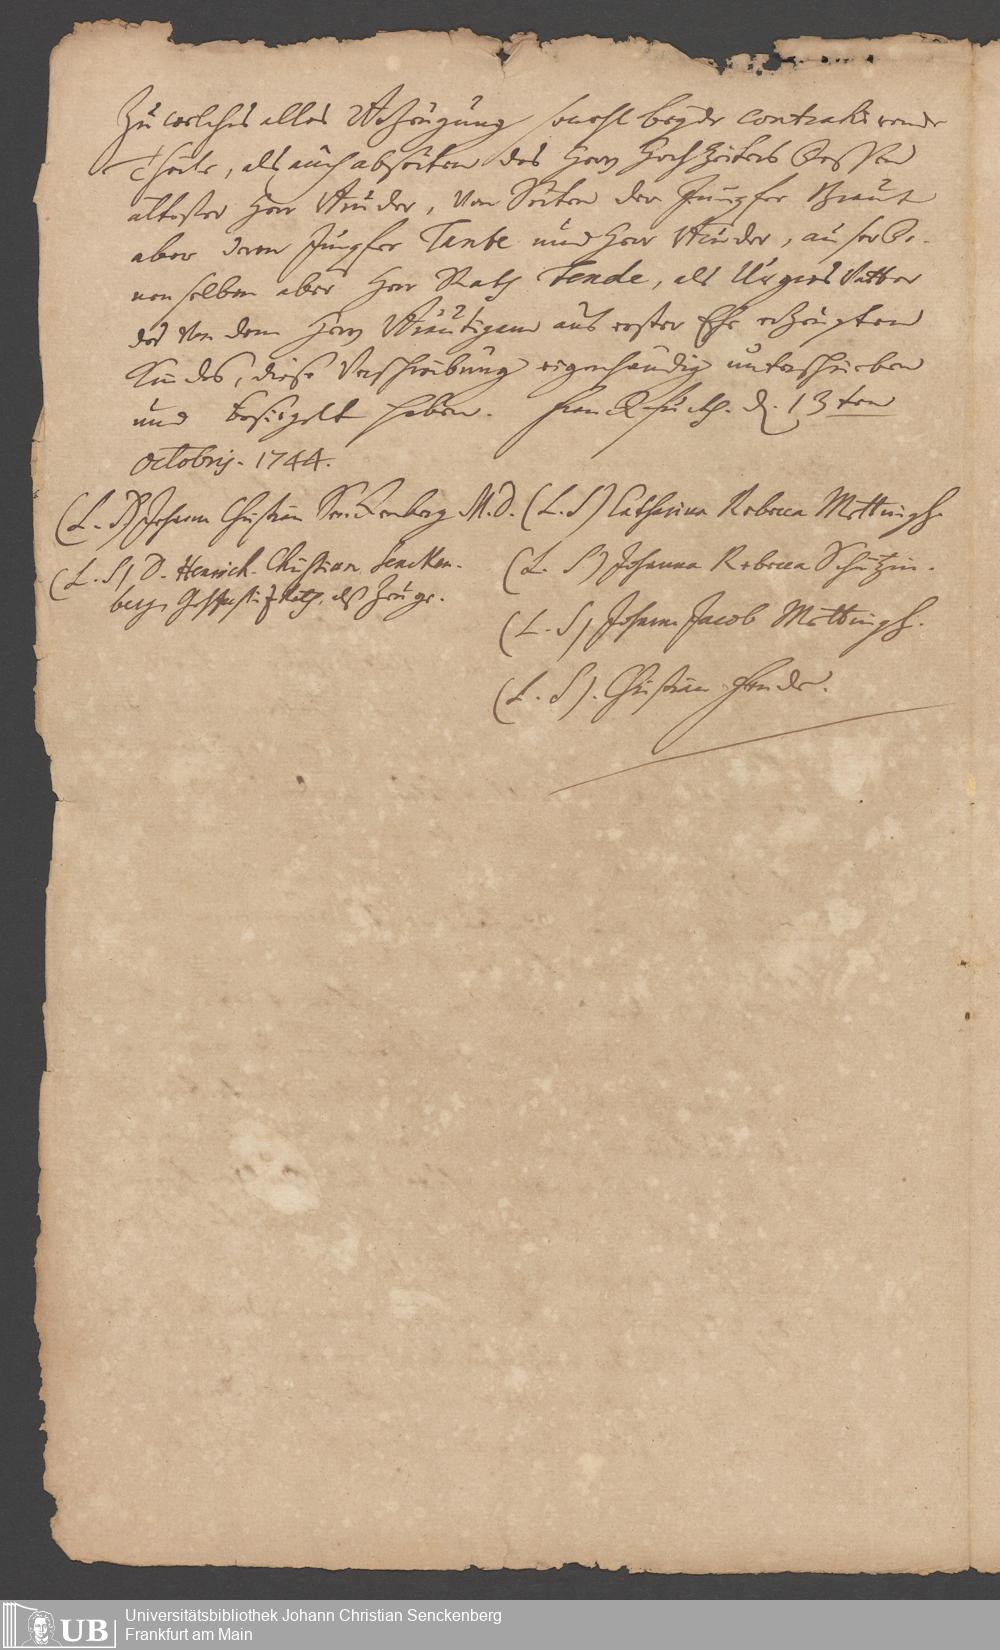 Zu welches alles Bezeugung sowohl beyde contrahirende
Theile, als auch abseiten des Herrn Hochzeiters dessen
ältester Herr Bruder, von Seiten der Jungfer Braut
aber deren Jungfer Tante und Herr Bruder, außer de-
nenselben aber Herr Rath Fende, als Urgros Vatter
des von dem Herrn Bräutigam aus erster Ehe erzeugten
Kindes, diese Verschreibung eigenhändig unterschrieben
und besiegelt haben. Franckfurth. d. 13ten
Octobris. 1744.
(L. S) Johann Christian Senckenberg M.D.
(L. S) D. Henrich Christian Sencken-
berg, als Zeuge.
(L. S) Catharina Rebecca Mettingh.
(L. S) Johanna Rebecca Schützin.
(L. S) Johann Jacob Mettingh.
(L. S). Christian Fende.
UB
Universitätsbibliothek Johann Christian Senckenberg
Frankfurt am Main